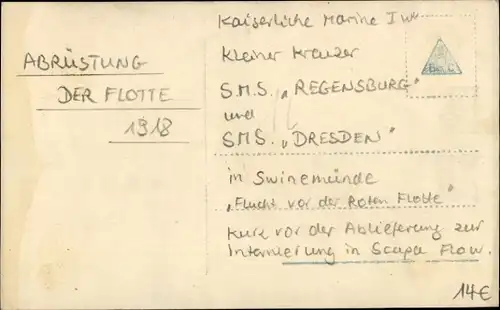 Kaiserliche Marine I WK
Kleiner Kreuzer
S.M.S. „REGENSBURG"
und
SMS „DRESDEN"
in Swinemünde
„Flucht vor der Roten Flotte"
Kurz vor der Ablieferung zur
Internierung in Scapa Flow.
ABRÜSTUNG
DER FLOTTE
1918
14€